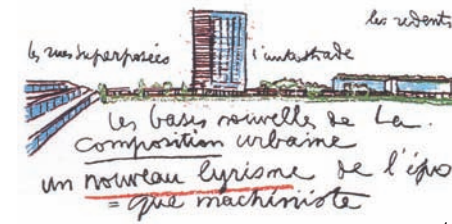 les redents
les rues superposées l'autostrade
les bases nouvelles de la
composition urbaine
un nouveau lyrisme de l'épo
= que machiniste